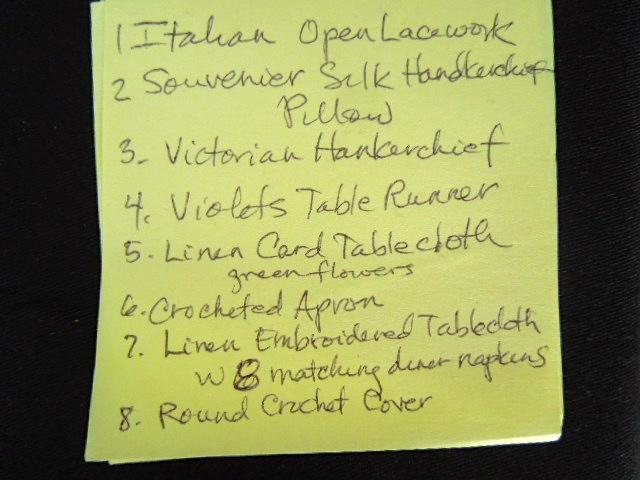 1 Italian Open Lacework
2 Souvenier Silk Handkerchief
Pillow
3. Victorian Hankerchief
4. Violets Table Runner
5. Linen Card Tablecloth
green flowers
6. Crocheted Apron
7. Linen Embroidered Tablecloth
w 8 matching diner napkins
8. Round Crochet Cover